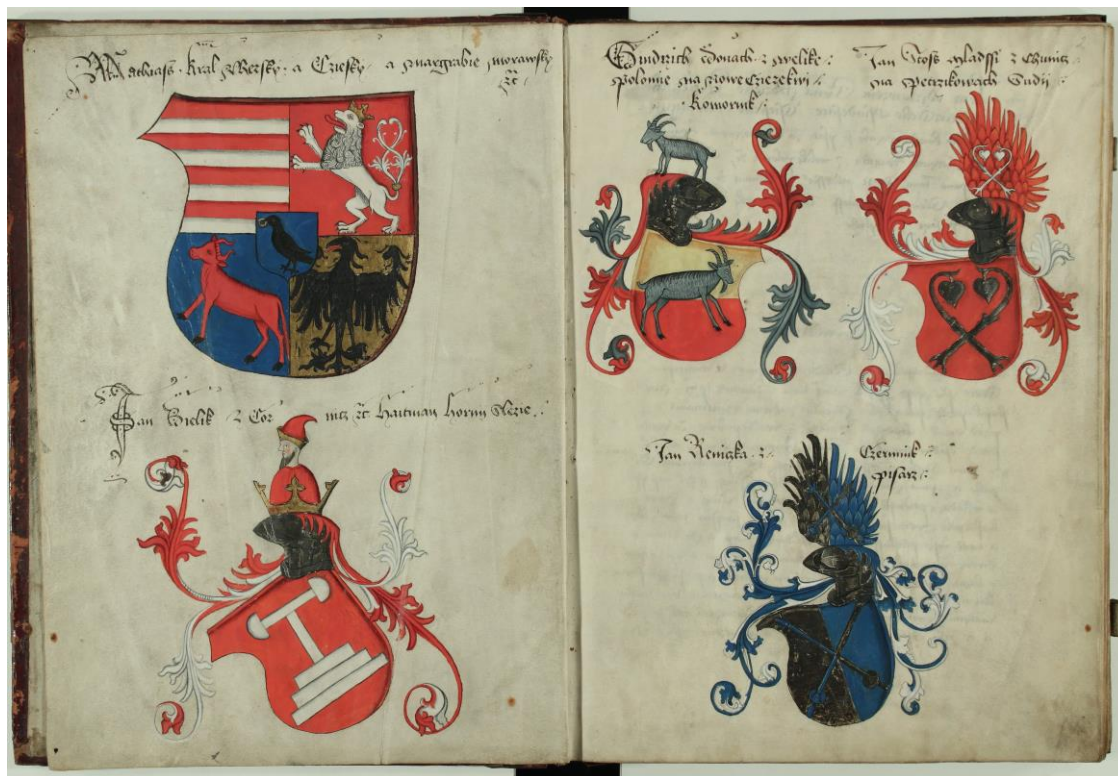 Mathiass · Kral Vhersky · a Cziesky · a Margrabie Morawsky
ꝛc
Jan Bielik z Cor nitz ꝛc Haitman Horni Slezie ·
Gindrich Donach z Welike
Polomie na Nowe Cziezekwi
Komornik
Jan Stoss Mladssi z Chunitz
na Petrzikowich Sudij
Jan Reniczka z Czermink
pisarz